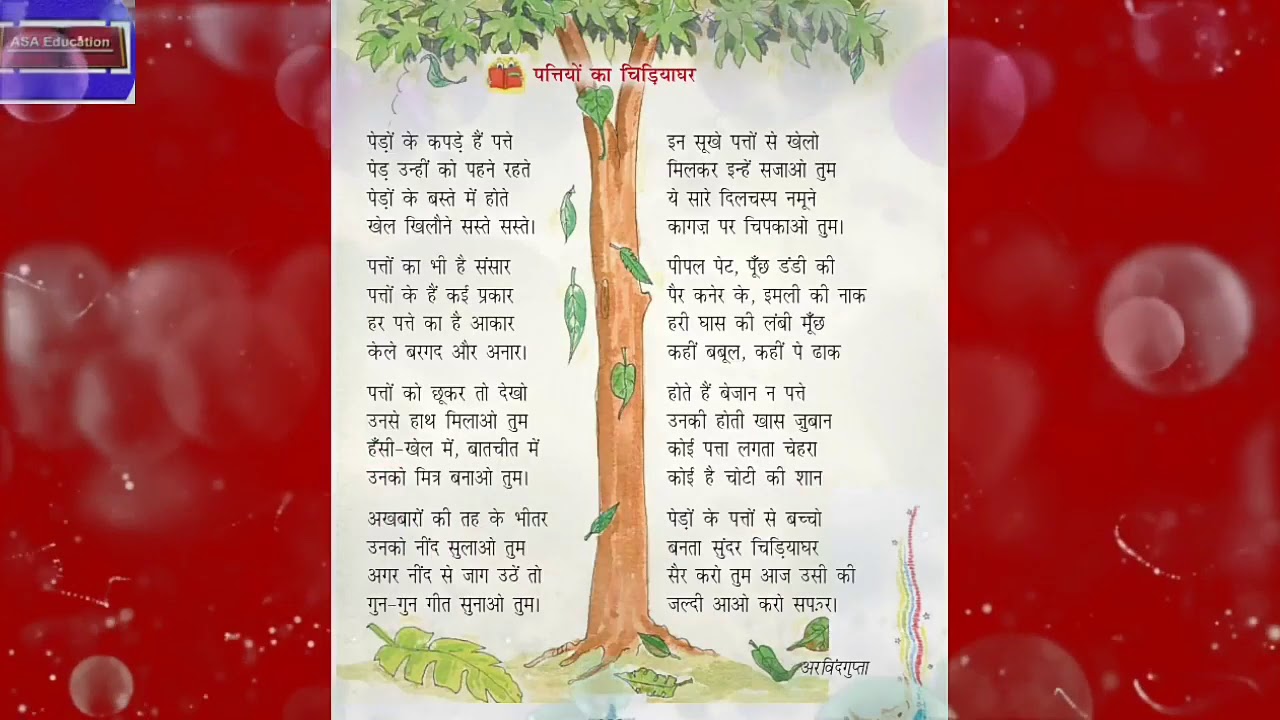 ASA Education
पत्तियों का चिड़ियाघर
पेड़ों के कपड़े हैं पत्ते
पेड़ उन्हीं को पहने रहते
पेड़ों के बस्ते में होते
खेल खिलौने सस्ते सस्ते।
पत्तों का भी है संसार
पत्तों के हैं कई प्रकार
हर पत्ते का है आकार
केले बरगद और अनार।
पत्तों को छूकर तो देखो
उनसे हाथ मिलाओ तुम
हँसी-खेल में, बातचीत में
उनको मित्र बनाओ तुम।
अखबारों की तह के भीतर
उनको नींद सुलाओ तुम
अगर नींद से जाग उठें तो
गुन-गुन गीत सुनाओ तुम।
इन सूखे पत्तों से खेलो
मिलकर इन्हें सजाओ तुम
ये सारे दिलचस्प नमूने
कागज़ पर चिपकाओ तुम।
पीपल पेट, पूँछ डंडी की
पैर कनेर के, इमली की नाक
हरी घास की लंबी मूँछ
कहीं बबूल, कहीं पे ढाक
होते हैं बेजान न पत्ते
उनकी होती खास जुबान
कोई पत्ता लगता चेहरा
कोई है चोटी की शान
पेड़ों के पत्तों से बच्चो
बनता सुंदर चिड़ियाघर
सैर करो तुम आज उसी की
जल्दी आओ करो सफ़र।
अरविंदगुप्ता